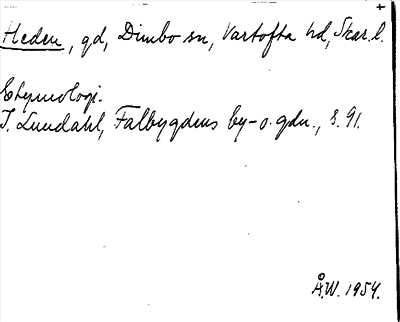 Heden, gd, Dimbo sn, Vartofta hd, Skar. l.
Etymologi.
I. Lundahl, Falbygdens by- o. gdn., s. 91.
Å.W. 1954.